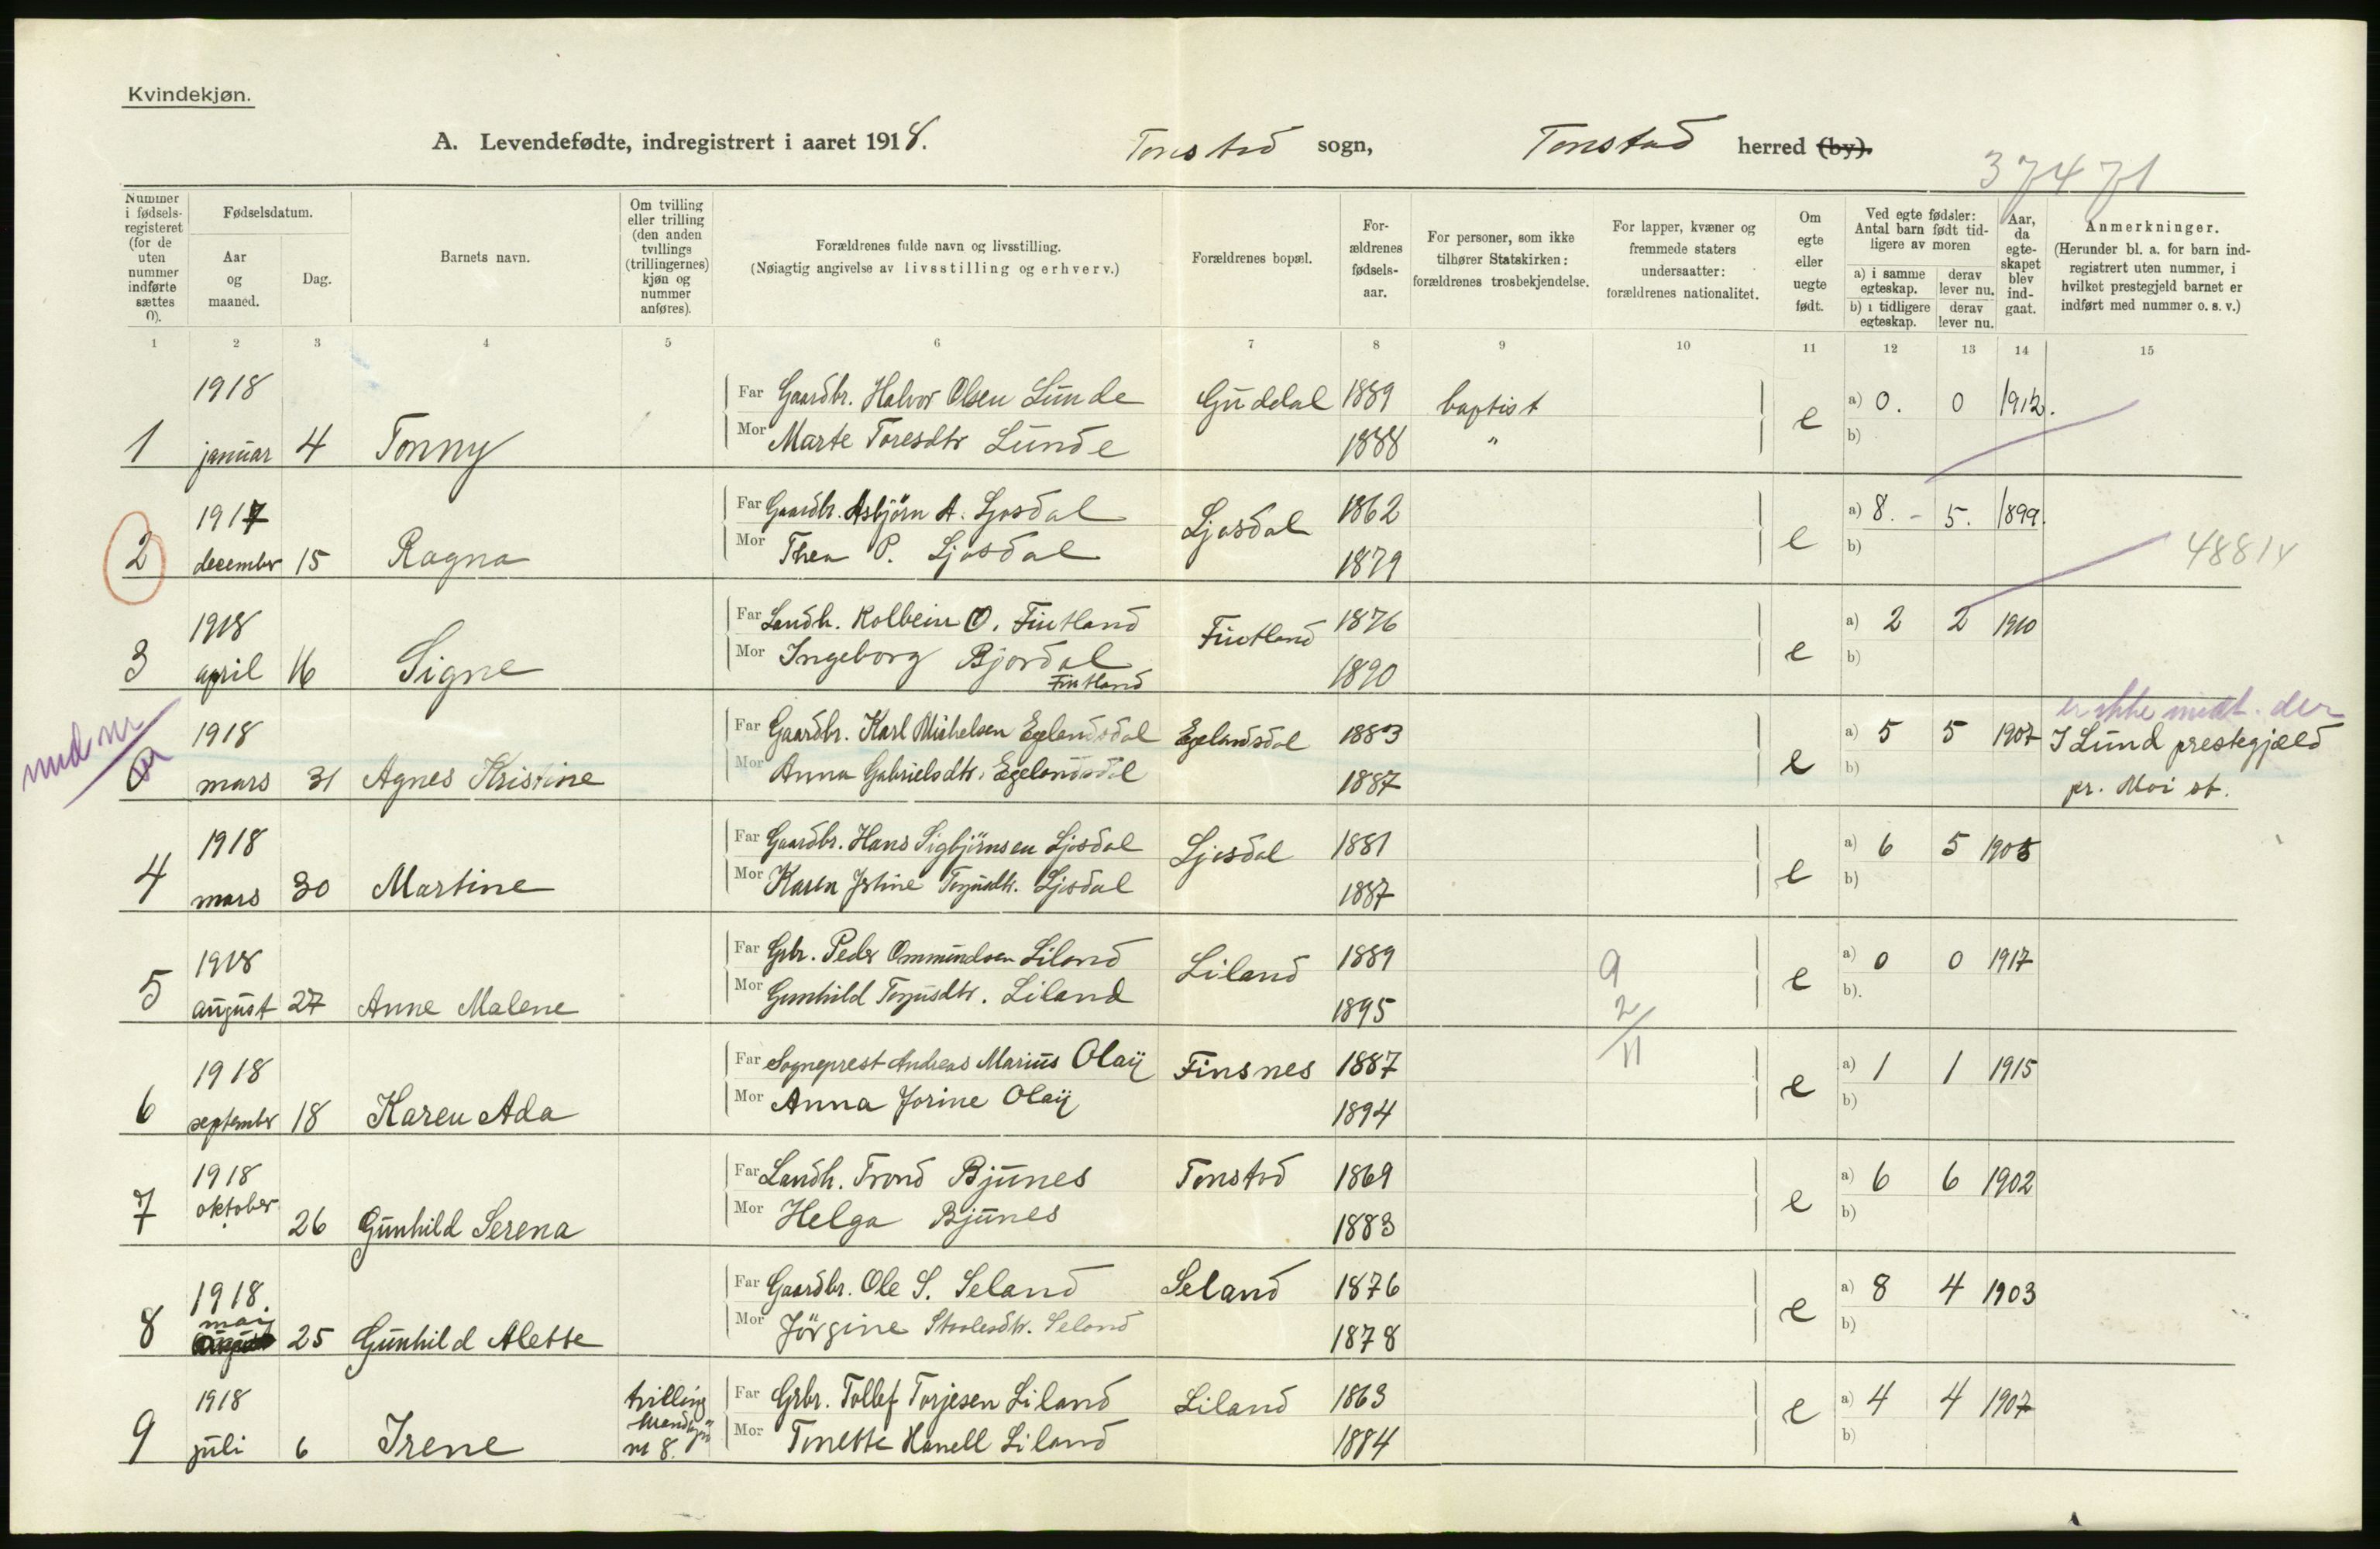 Kvindekjøn.
A. Levendefødte, indregistrert i aaret 1918. Tonstad sogn, Tonstad herred (by).
37471
Nummer i fødsels-registeret (for de uten nummer indførte sættes 0).
Fødselsdatum.
Aar og maaned.
Dag.
Barnets navn.
Om tvilling eller trilling (den anden tvillings (trillingernes) kjøn og nummer anføres).
Forældrenes fulde navn og livsstilling.
(Nøiagtig angivelse av livsstilling og erhverv.)
Forældrenes bopæl.
For-ældrenes fødsels-aar.
For personer, som ikke tilhører Statskirken: forældrenes trosbekjendelse.
For lapper, kvæner og fremmede staters undersaatter: forældrenes nationalitet.
Om egte eller uegte født.
Ved egte fødsler: Antal barn født tid-ligere av moren
a) i samme egteskap. derav lever nu.
b) i tidligere egteskap. derav lever nu.
Aar, da egte-skapet blev ind-gaat.
Anmerkninger.
(Herunder bl. a. for barn ind-registrert uten nummer, i hvilket prestegjeld barnet er indført med nummer o. s. v.)
1 2 3 4 5 6 7 8 9 10 11 12 13 14 15
1918
Far Gaardbr. Halvor Olsen Lunde Guddal 1889 baptist e a) 0. 0 1912.
1 januar 4 Tonny Mor Marte Toresdtr Lunde 1888 " b)
1917
Far Gaardbr. Asbjörn A. Ljosdal Ljosdal 1862 e a) 8. - 5. 1899.
2 december 15 Ragna Mor Thea P. Ljosdal 1879 b) 48818
1918
Far Landh. Kolbein O. Fintland Fintland 1876 e a) 2 2 1910
3 april 16 Signe Mor Ingeborg Bjordal Fintland 1890 b)
1918
er ikke medt. der
Far Gaardbr. Karl Mikhelsen Egelandsdal Egelandsdal 1883 e a) 5 5 1907 I Lund prestegjæld
0 mars 31 Agnes Kristine Mor Anna Gabrielsdtr. Egelandsdal 1887 b) pr. Moi st.
1918
Far Gaardbr. Hans Sigbjörnsen Ljosdal Ljosdal 1881 e a) 6 5 1905
4 mars 30 Martine Mor Karen Jstine Terjusdtr. Ljosdal 1887 b)
1918
Far Grbr. Peder Ommundsen Liland Liland 1889 9 e a) 0 0 1917
5 august 27 Anne Malene Mor Gunhild Terjusdtr. Liland 1895 2/11 b).
1918
Far Sogneprest Andreas Marius Olaij Finsnes 1887 e a) 1 1 1915
6 september 18 Karen Ada Mor Anna Jorine Olaij 1894 b)
1918
Far Landh. Trond Bjunes Tonstad 1869 e a) 6 6 1902
7 oktober 26 Gunhild Serena Mor Helga Bjunes 1883 b)
1918.
Far Gaardbr. Ole S. Seland Seland 1876 e a) 8 4 1903
8 mai 25 Gunhild Alette Mor Jörgine Staalesdtr. Seland 1878 b)
1918
tvilling
Far Grbr. Tollef Torjesen Liland Liland 1863 e a) 4 4 1907
9 juli 6 Irene nr 8. Mor Tonette Hanell Liland 1884 b)